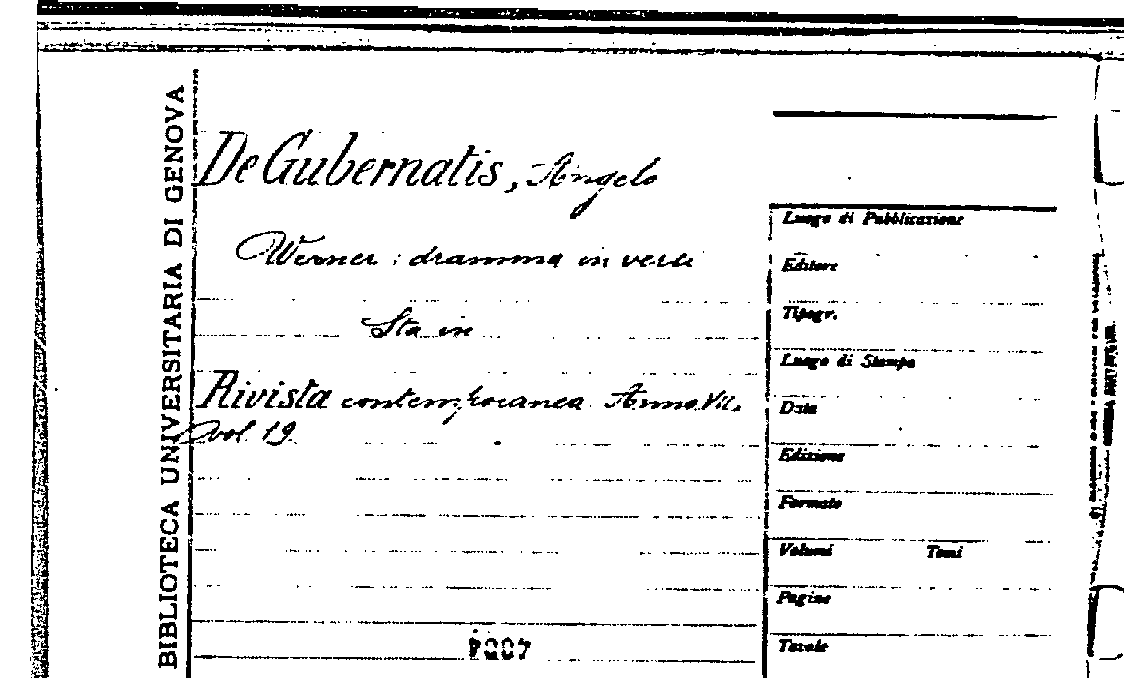 BIBLIOTECA UNIVERSITARIA DI GENOVA
De Gubernatis, Angelo
Werner : dramma in versi
Sta in
Rivista contemporanea. Anno VII.
vol. 19
Luogo di Pubblicazione
Editore
Tipogr.
Luogo di Stampa
Data
Edizione
Formato
Volumi Tomi
Pagine
Tavole